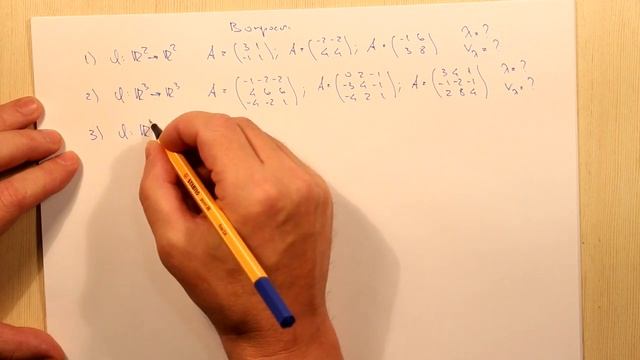 Вопросы.
1) φ: ℝ² → ℝ² A = (3 1; -1 1); A = (-2 -2; 4 4); A = (-1 6; 3 8) λ = ? V_λ = ?
2) φ: ℝ³ → ℝ³ A = (-1 -2 -2; 4 6 6; -4 -2 1); A = (0 2 -1; -3 4 -1; -4 2 1); A = (3 4 1; -1 -2 -1; 2 8 4) λ = ? V_λ = ?
3) φ: ℝ
STABILO